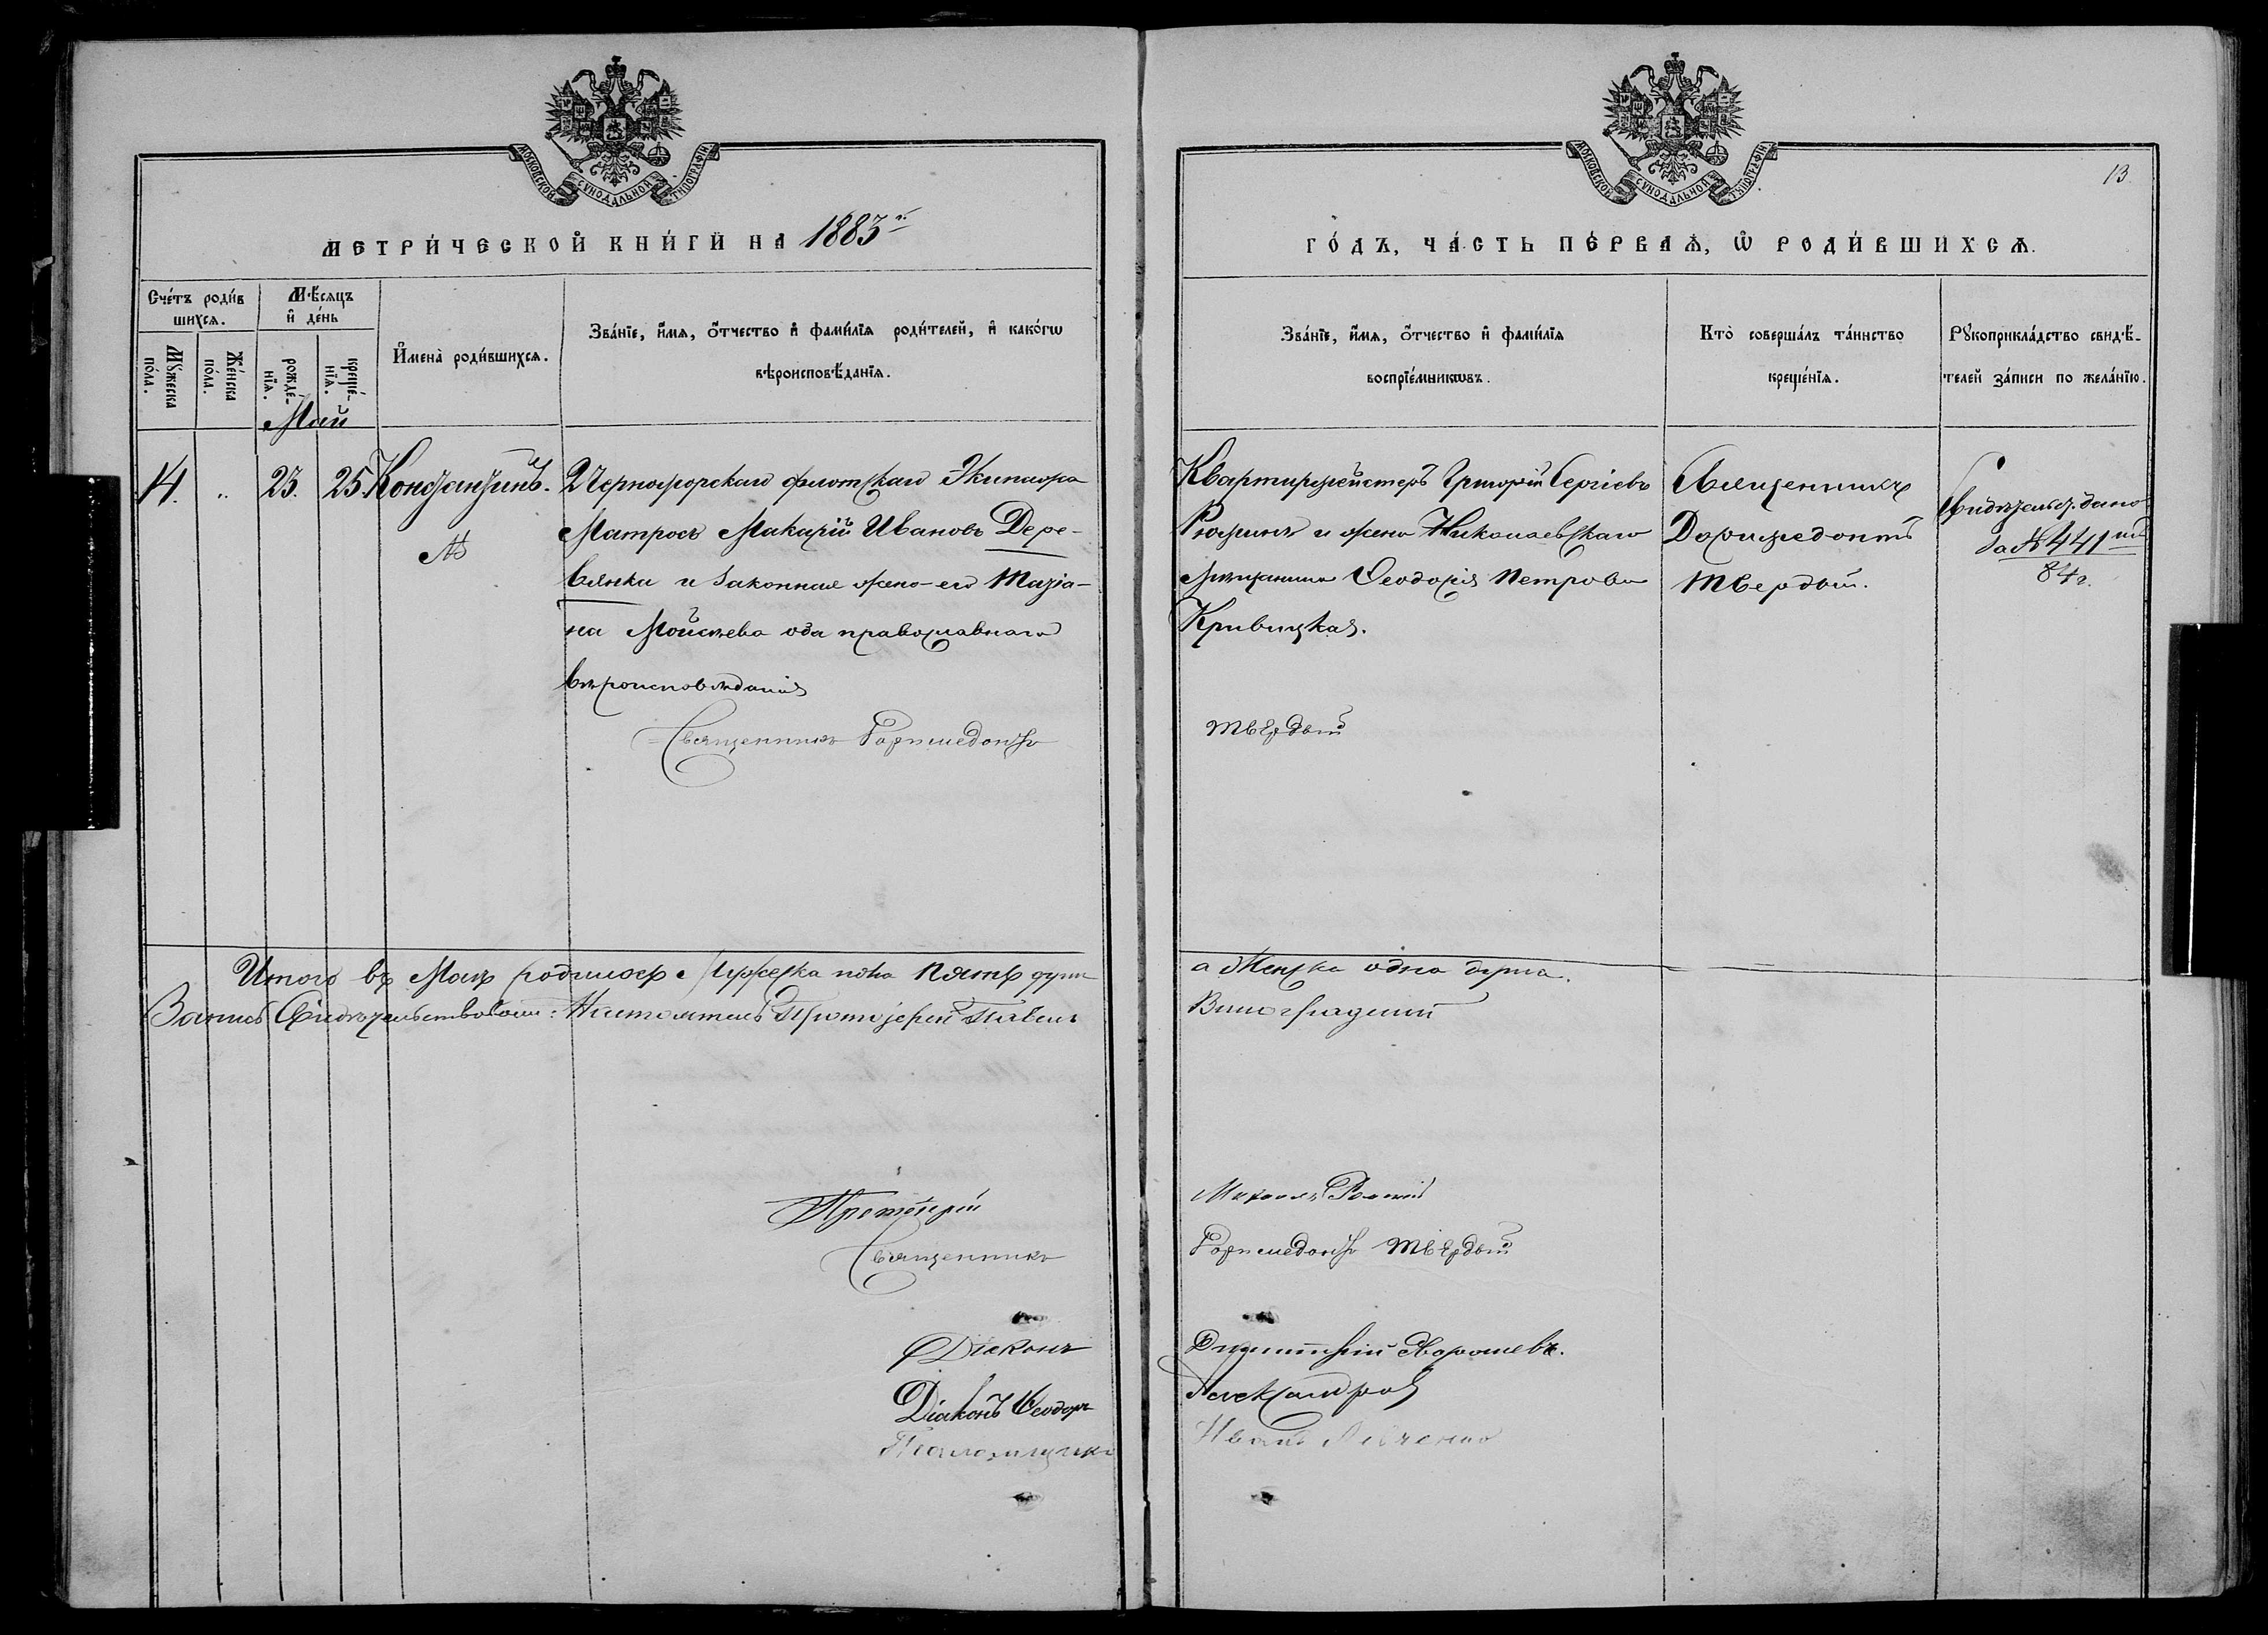 МОСКОВСКОЙ СУНОДАЛЬНОЙ ТИПОГРАФІИ
МЕТРИ́ЧЕСКОЙ КНИ́ГИ НА 1883 г.
Сче́тъ роди́вшихся.
Мѣ́сяцъ и де́нь
Му́жеска по́ла.
Же́нска по́ла.
рожде́нїя.
креще́нїя.
И҆мена̀ роди́вшихся.
Зва́нїе, и҆́мя, ѻ҆́тчество и҆ фами́лїя роди́телей, и҆ како́гѡ
вѣроисповѣ́данїя.
Май
14. " 23. 25. Константинъ.
2 Черноморскаго флотскаго Экипажа
Матросъ Макарій Ивановъ Дере-
вянка и законная жена его Маріа-
на Моисеева оба православнаго
вѣроисповѣданія
Священникъ Формедонтъ
Итого въ Маѣ родилось Мужеска пола пять душъ
Запись Свидѣтельствовали: Настоятель Протоіерей Павелъ
Протоіерей
Священникъ
Діаконъ
Діаконъ Ѳеодоръ
Псаломщикъ
МОСКОВСКОЙ СУНОДАЛЬНОЙ ТИПОГРАФІИ
13.
ГО́ДЪ, ЧА́СТЬ ПЕ́РВАЯ, Ѡ҆ РОДИ́ВШИХСЯ.
Зва́нїе, и҆́мя, ѻ҆́тчество и҆ фами́лїя
воспрїе́мникѡвъ.
Кто̀ соверша́лъ та́инство
креще́нїя.
Рꙋкоприкла́дство свидѣ́-
телей за́писи по жела́нїю.
Квартирмейстеръ Григорій Сергіевъ
и жена Николаевскаго
мѣщанина Ѳеодосія Петрова
Кривицкая.
Священникъ
Доримедонтъ
Твердый.
Свидѣтельс. дано
за № 441
84 г.
Твердый
а Женска одна душа.
Виноградскій
Михаилъ
Доримедонтъ Твердый
Димитрій
Александровъ
Иванъ